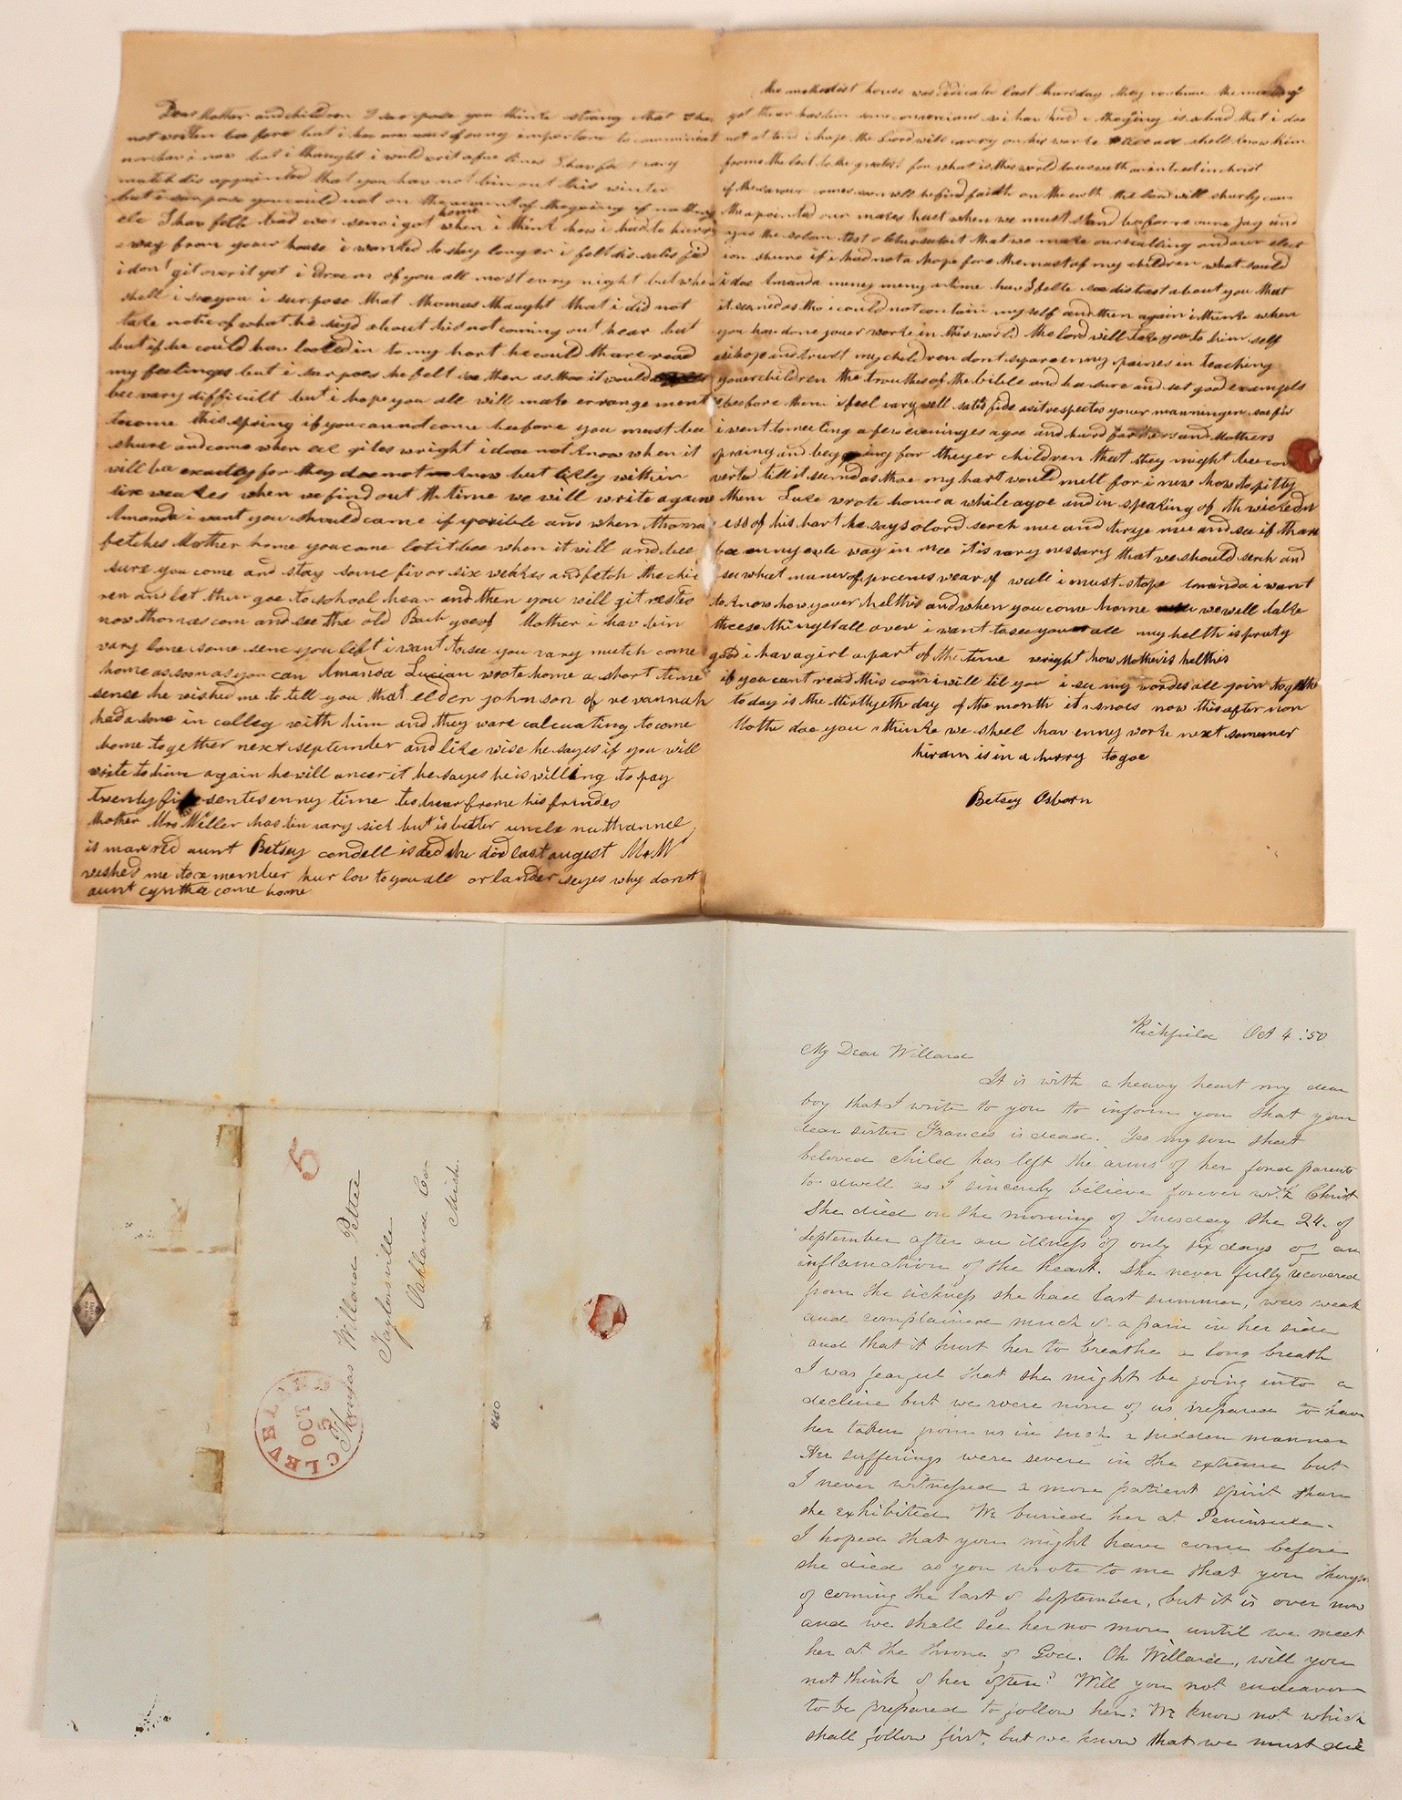 Dear Mother and children I surpose you think strang that I hav
not wroten before but i hav no nuse of enny importans to communicat
nor hav i now but i thaught i would writ a fue lines I hav felt vary
mutch dis appointed that you hav not bin out this winter
but i surpose you could not on the account of the going if nothing
els I hav felt bad ever senc i got home when i think how i had to hurry
away from youer house i wanted to stay longer i felt dis satis fid
i don't git over it yet i dream of you all most evry night but when
shall i see you i surpose that thomas thaught that i did not
take notic of what he sayd about his not coming out hear but
but if he could hav looked in to my hart he could thare read
my feelings but i surpos he felt as tho it would
bee vary difficult but i hope you all will make errangement
to come this spring if you can not come beefore you must bee
shure and come when el giles wright i doe not know when it
will be exactly for they doe not know but likly within
six weakes when we find out the time we will write again
Amanda i want you should came if posible and when thomas
fetches Mother home you come let it bee when it will and bee
sure you come and stay some fiv or six weakes and fetch the chil
ren and let them goe to school hear and then you will git rested
now thomas com and see the old Mother i hav bin
vary lone some senc you left i want to see you vary mutch come
home as soon as you can Amanda Lucian wrote home a short time
sense he wished me to tell you that elder johnson of revannah
had a sone in colleg with him and they ware calcuating to come
home to gether next september and like wise he sayes if you will
write to him again he will ancer it he sayes he is willing to pay
twenty five sentes enny time to hear frome his frindes
Mother Mrs Miller has bin vary sick but is better uncle nathannel
is marred aunt Betsey condell is ded she did last augest Mr M
wished me to remember hur lov to you all orlander seyes why dont
aunt cyntha come home
the methodist house was dedicated last thursday they continue the meetings
yet thear has ben some conversions as i hav hurd i
not attend i hope the Lord will carry on his worke all shall know him
frome the least to the greatest for what is this world to us with out an intrest in christ
if the savour comes son will he find faith on the earth the lord will shurly com
the apointed our makes hast when we must stand before
yes the solom test o let us see to it that we make our calling and our elect
ion shure if i had not a hope fore the most of my children what sould
i doe Amanda meney meney a time hav I felte so distrest about you that
it semed as tho i could not contain my self and then again i thinke when
you hav done youer worke in this world the lord will take you to him self
i hope and trust my children dont spare enny paines in teaching
youer children the trouthes of the bible and bee sure and set good exampels
beefore them i feel vary well satis fide as it respectes youer manningen so fur
i went to meeting a few eveninges agoe and hurd fathers and Mothers
praing and begging for theyer children that they might bee con
verted till it seemd as thoe my hart would melt for i new how to pitty
them Luke wrote home a while agoe and in speaking of th wickedn
ess of his hart he says o lord serch mee and trye mee and see if thare
be enny evle way in mee it is vary nessary that we should serch and
see what maner of we ar of well i must stope amanda i want
to know how youer helth is and when you come home we will talke
theese thinges all over i want to see you all my helth is prity
good i hav a girl a part of the time wright how Mothers helth is
if you cant read this com i will tel you i see my wordes all join to gether
to day is the thirthyeth day of the month it snoes now this after non
Mother doe you thinke we shell hav enny worke next somemer
hiram is in a hurry to goe
Betsey Osborn
Richfield Oct 4. '50
My Dear Willard
It is with a heavy heart my dear
boy that I write to you to inform you that your
dear sister Frances is dead. Yes my son that
beloved child has left the arms of her fond parents
to dwell as I sincerely believe forever with Christ
She died on the morning of Tuesday the 24. of
September after an illness of only six days of an
inflamation of the heart. She never fully recovered
from the sickness she had last summer, was weak
and complained much of a pain in her side
and that it hurt her to breathe a long breath
I was fearful that she might be going into a
decline but we were none of us prepared to have
her taken from us in such a sudden manner
Her sufferings were severe in the extreme but
I never witnessed a more patient spirit than
she exhibited. We buried her at Peninsula.
I hoped that you might have come before
she died as you wrote to me that you thought
of coming the last of September, but it is over now
and we shall see her no more until we meet
her at the throne of God. Oh Willard, will you
not think of her often? Will you not endeavor
to be prepared to follow her? We know not which
shall follow first, but we know that we must die
5
Thomas Willard Pettee
Taylorsville
Oakland Co
Mich.
CLEVELAND
OCT
5